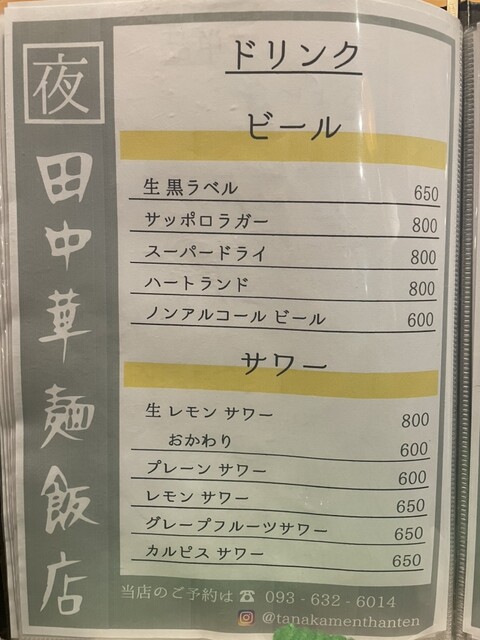 夜
田中華麺飯店
ドリンク
ビール
生 黒ラベル 650
サッポロラガー 800
スーパードライ 800
ハートランド 800
ノンアルコール ビール 600
サワー
生 レモン サワー 800
おかわり 600
プレーン サワー 600
レモン サワー 650
グレープフルーツサワー 650
カルピス サワー 650
当店のご予約は ☎ 093 - 632 - 6014
@tanakamenthanten